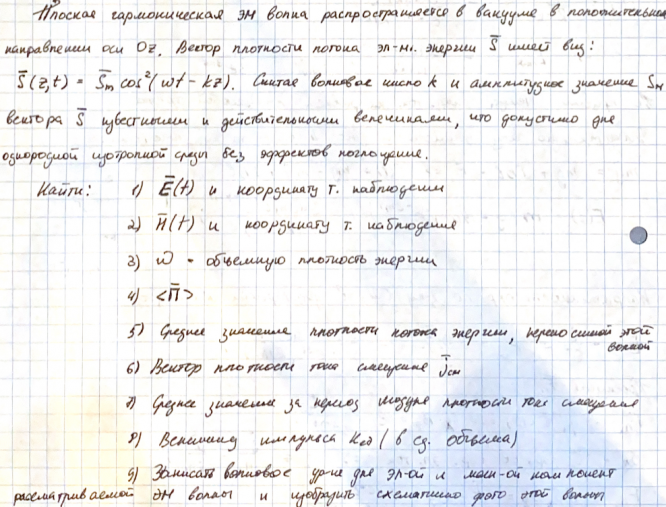 Плоская гармоническая ЭМ волна распространяется в вакууме в положительном
направлении оси Oz. Вектор плотности потока эл-м. энергии S̄ имеет вид:
S̄(z,t) = S̄m cos²(ωt - kz). Считая волновое число k и амплитудное значение Sm
вектора S̄ известными и действительными величинами, что допустимо для
однородной изотропной среды без эффектов поглощения.
Найти: 1) Ē(t) и координату т. наблюдения
2) H̄(t) и координату т. наблюдения
3) ω - объемную плотность энергии
4) <П̄>
5) Среднее значение плотности потока энергии, переносимой этой
волной
6) Вектор плотности тока смещения j̄см
7) Среднее значение за период модуля плотности тока смещения
8) Величину импульса Kед (в ед. объема)
9) Записать волновое ур-е для эл-ой и магн-ой компонент
рассматриваемой ЭМ волны и изобразить схематично фото этой волны